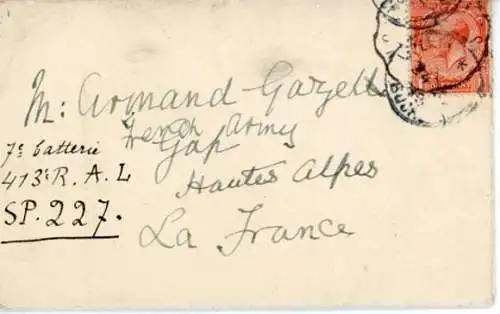 M: Armand Gazell
French Army
Gap
Hautes Alpes
La France
7e batterie
413e R.A.L
SP. 227.